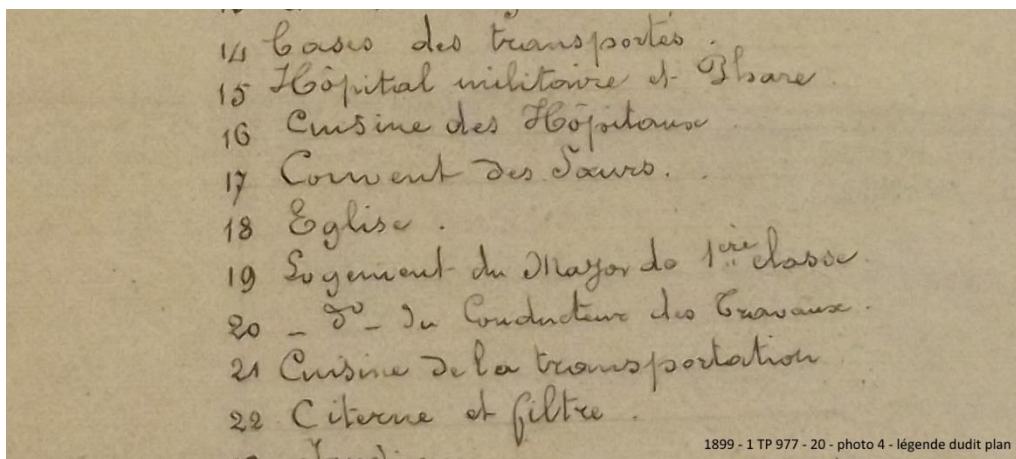 14 Cases des transportés.
15 Hôpital militaire et Phare.
16 Cuisine des Hôpitaux
17 Couvent des Sœurs.
18 Eglise.
19 Logement du Major de 1ère classe
20 _ dº _ du Conducteur des Travaux.
21 Cuisine de la transportation
22 Citerne et filtre.
1899 - 1 TP 977 - 20 - photo 4 - légende dudit plan